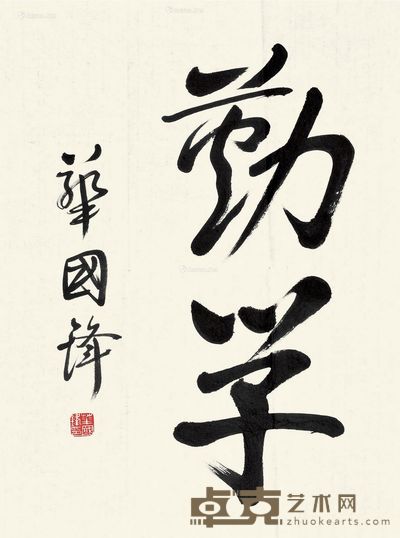 勤学
華國锋
卓克艺术网
zhuokearts.com